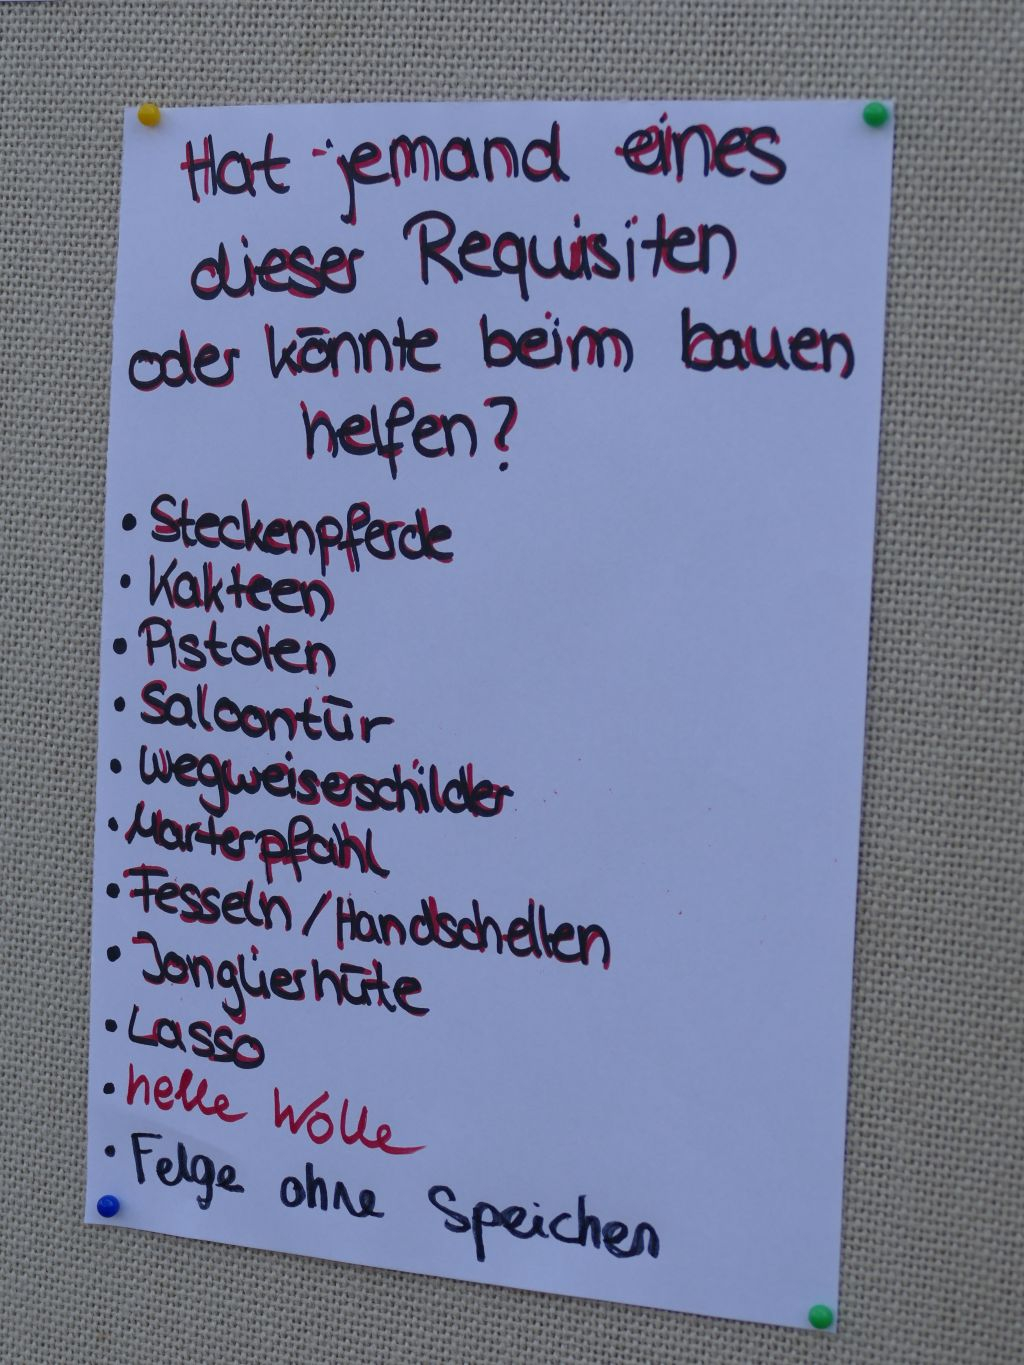 Hat jemand eines
dieser Requisiten
oder könnte beim bauen
helfen?
• Steckenpferde
• Kakteen
• Pistolen
• Saloontür
• Wegweiserschilder
• Marterpfahl
• Fesseln / Handschellen
• Jonglierhüte
• Lasso
• helle Wolle
• Felge ohne Speichen